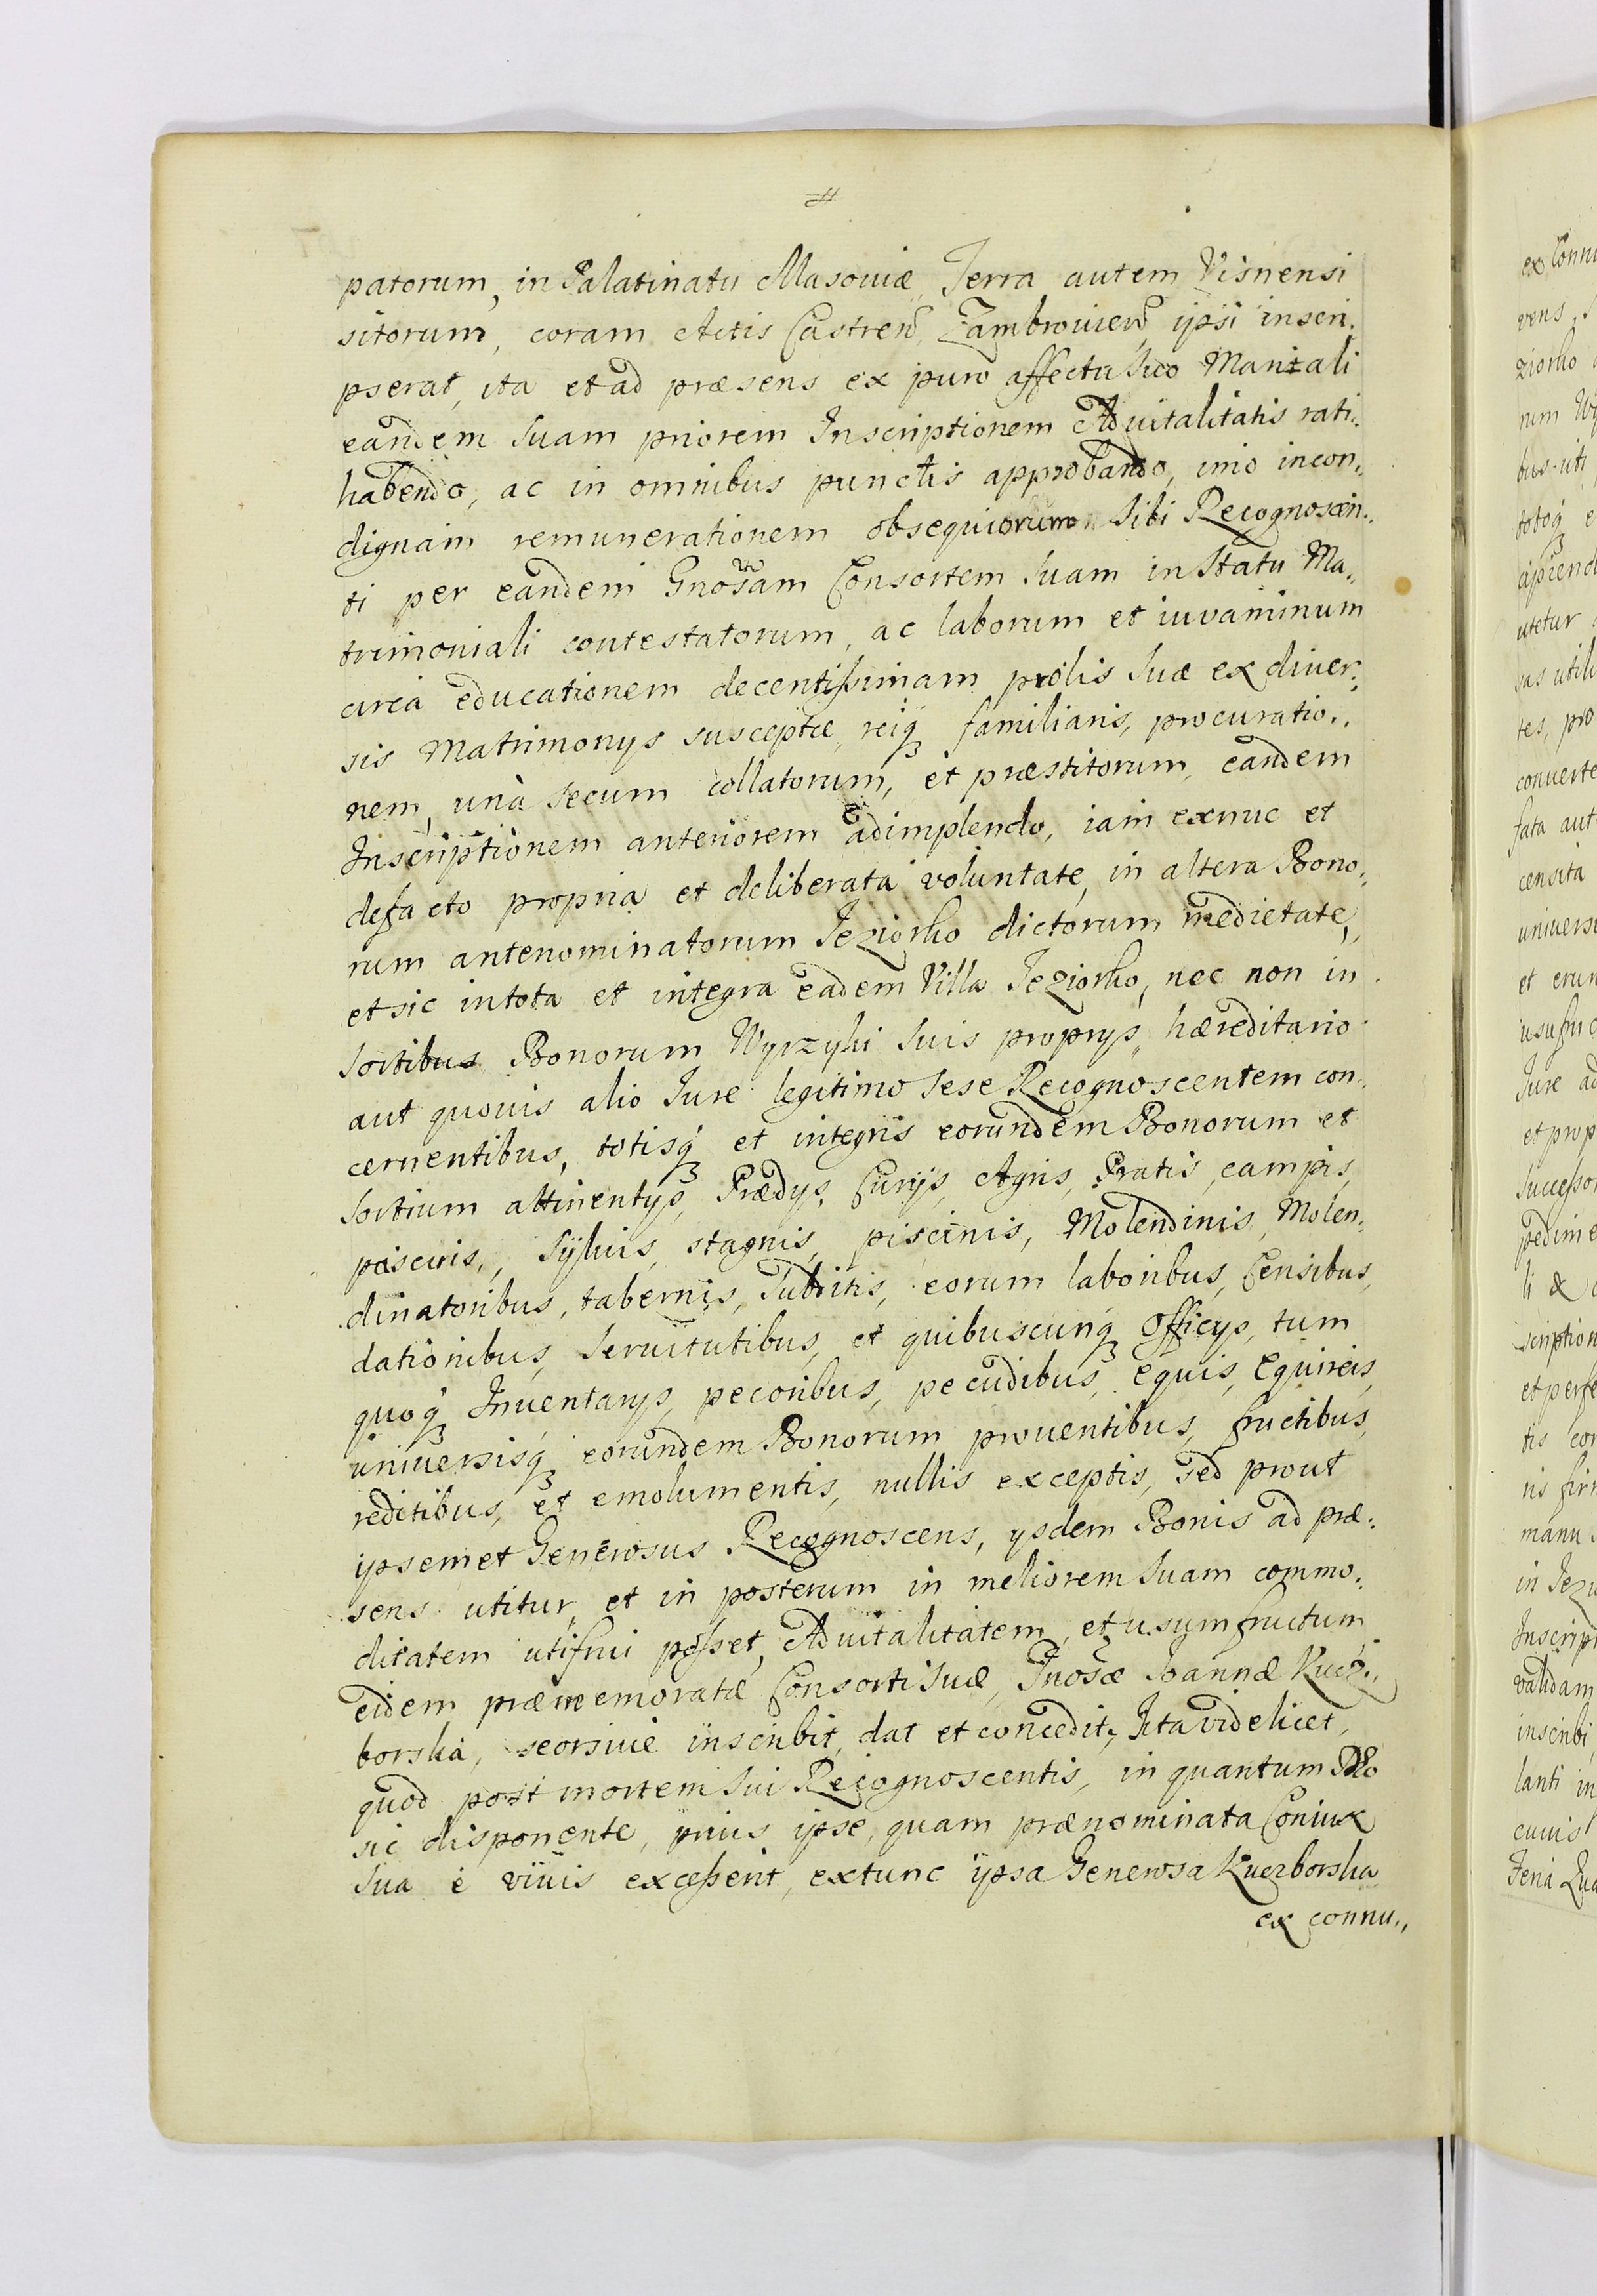 patorum, in Palatinatu Masoviæ Terra autem Visnensi
sitorum, coram Actis Castren Zambrovien ipsi inscri,
pserat, ita et ad præsens ex puro affectu suo Maritali
eandem suam priorem Inscriptionem Advitalitatis rati,,
habendo, ac in omnibus punctis approbando, imo incon,,
dignam remunerationem obsequiorum sibi Recognoscen,,
ti per eandem Gnosam Consortem suam in statu Ma,,
trimoniali contestatorum, ac laborum et iuvaminum
circa educationem decentissimam prolis suæ ex diver,,
sis Matrimonys susceptæ, reiq familiaris, procuratio,,
nem, unà secum collatorum, et præstitorum, eandem
Inscriptionem anteriorem adimplendo, iam exnuc et
defacto propria et deliberata voluntate, in altera Bono,,
rum antenominatorum Jeziorko dictorum medietate,
et sic in tota et integra eadem Villa Jeziorko, nec non in
sortibus Bonorum Wyrzyki suis proprys, hæreditario
aut quovis alio Iure legitimo sese Recognoscentem con,,
cernentibus, totisq et integris eorundem Bonorum et
sortium attinentys, Prædys, Curijs, Agris, Pratis, campis,
pascuis, Sylvis, stagnis, piscinis, Molendinis, Molen,,
dinatoribus, tabernis, Subditis, eorum laboribus, Censibus,
dationibus, Servitutibus, et quibuscunq Officys, tum
quoq Inventarys, pecoribus, pecudibus, equis, Equireis,
universisq eorundem Bonorum proventibus, fructibus,
reditibus, et emolumentis, nullis exceptis, sed prout
ipsemet Generosus Recognoscens, ysdem Bonis ad præ,,
sens utitur, et in posterum in meliorem suam commo,,
ditatem utifrui posset, Advitalitatem, et usumfructum
eidem præmemoratæ Consorti suæ, Gnosæ Joannæ Kucz,,
borska, seorsive inscribit, dat et concedit, Ita videlicet,
quod post mortem sui Recognoscentis, in quantum DEo
sic disponente, prius ipse, quam prænominata Coniux
sua è vivis excesserit, extunc ipsa Generosa Kuczborska
ex connu,,